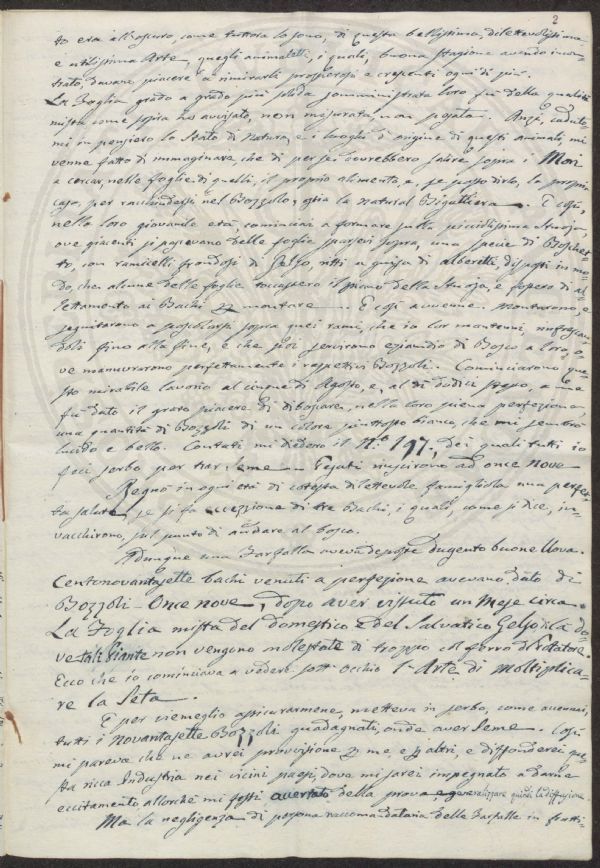 2
to era all'oscuro, come tuttora lo sono, di questa bellissima, dilettevolissima
e utilissima Arte, quegli animaletti, i quali, buona stagione avendo incon-
trato, davano piacere a rimirarli prosperosi e crescenti ogni dì più.
La Foglia grado a grado più solida somministrata loro fu della qualità
mista come sopra ho avvisato, non misurata, non pesata. Anzi, caduto-
mi in pensiero lo stato di Natura, e i luoghi d'origine di questi animali, mi
venne fatto di immaginare, che di per se dovrebbero salire sopra i Mori
a cercar, nelle foglie di quelli, il proprio alimento, e, se posso dirlo, la propria
casa, per racchiudersi nel Bozzolo, ossia la natural Bigattiera. E così,
nella loro giovanile età, cominciai a formare sulla piccolissima Stuoja,
ove giacenti si pascevano della foglia sparsevi sopra, una specie di Boschet-
to, con ramicelli frondosi di Gelso ritti a guisa di alberetti, disposti in mo-
do, che alcune delle foglie toccassero il piano della Stuoja, e fossero di al-
lettamento ai Bachi per montare. E così avvenne. Montarono, e
seguitarono a pascolarsi sopra quei rami, che io lor mantenni, rinfrescan-
doli fino alla fine, e che poi servirono eziandio di Bosco a loro, o-
ve manuvrarono perfettamente i rispettivi Bozzoli. Cominciarono que-
sto mirabile lavoro al cinque di Agosto, e, al dì dodici stesso, a me
fu dato il grato piacere di diboscare, nella loro piena perfezione,
una quantità di Bozzoli di un colore piuttosto bianco, che mi sembrò
lucido e bello. Contati mi diedero il N.° 197, dei quali tutti io
feci serbo per trar seme. Pesati riuscirono ad once nove
Regnò in ogni età di cotesta dilettevole famigliola una perfet-
ta salute, se si fa eccezzione di tre Bachi, i quali, come si dice, in-
vacchirono, sul punto di andare al bosco.
Adunque una Farfalla aveva deposte dugento buone Uova.
Centonovantasette bachi venuti a perfezione avevano dato di
Bozzoli Once nove, dopo aver vissuto un Mese circa.
La Foglia mista del domestico e del Salvatico Gelso la do-
ve tali Piante non vengono molestate di troppo col ferro del Potatore.
Ecco che io cominciava a vedere sott'occhio l'Arte di moltiplica-
re la Seta.
E per viemeglio assicurarmene, metteva in serbo, come accennai,
tutti i Novantasette Bozzoli guadagnati, onde aver Seme. Così
mi pareva che ne avrei provvisione per me e per altri, e diffonderei que-
sta ricca Industria nei vicini paesi, dove mi sarei impegnato a darne
eccitamento allorchè mi fossi accertato della prova, e generalizzare quindi la diffusione.
Ma la negligenza di persona raccomandataria delle Farfalle in frutti-